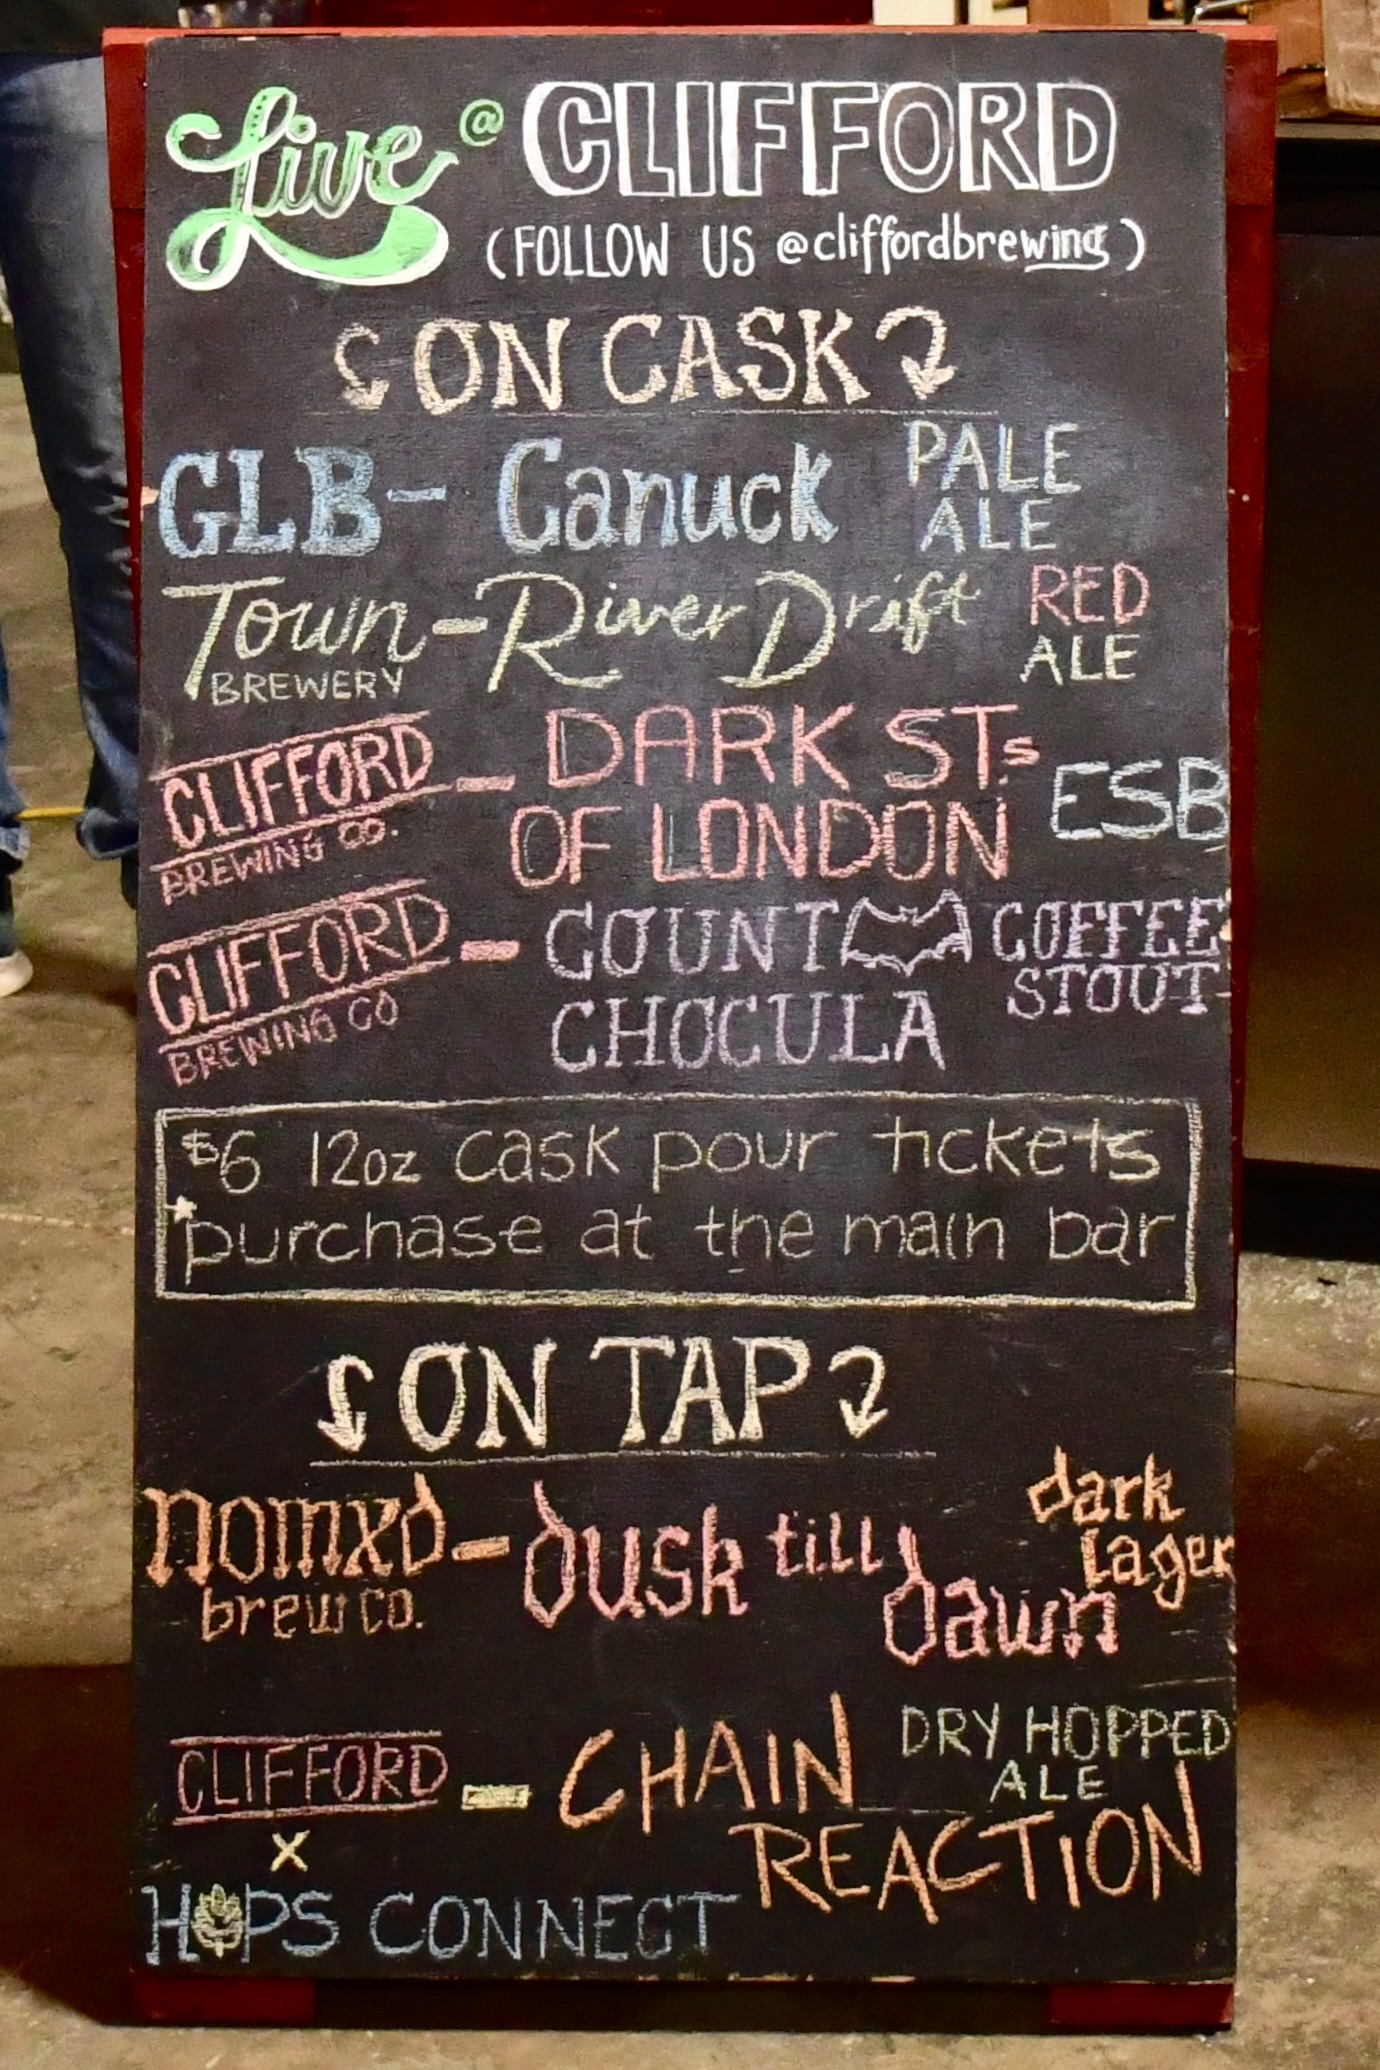 Live @ CLIFFORD
(FOLLOW US @cliffordbrewing)
ON CASK
GLB - Canuck PALE ALE
Town BREWERY - River Drift RED ALE
CLIFFORD BREWING CO. - DARK STs. OF LONDON ESB
CLIFFORD BREWING CO - COUNT CHOCULA COFFEE STOUT
$6 12oz cask pour tickets
purchase at the main bar
ON TAP
nomxd brew co. - dusk till dawn dark lager
CLIFFORD X HOPS CONNECT - CHAIN REACTION DRY HOPPED ALE